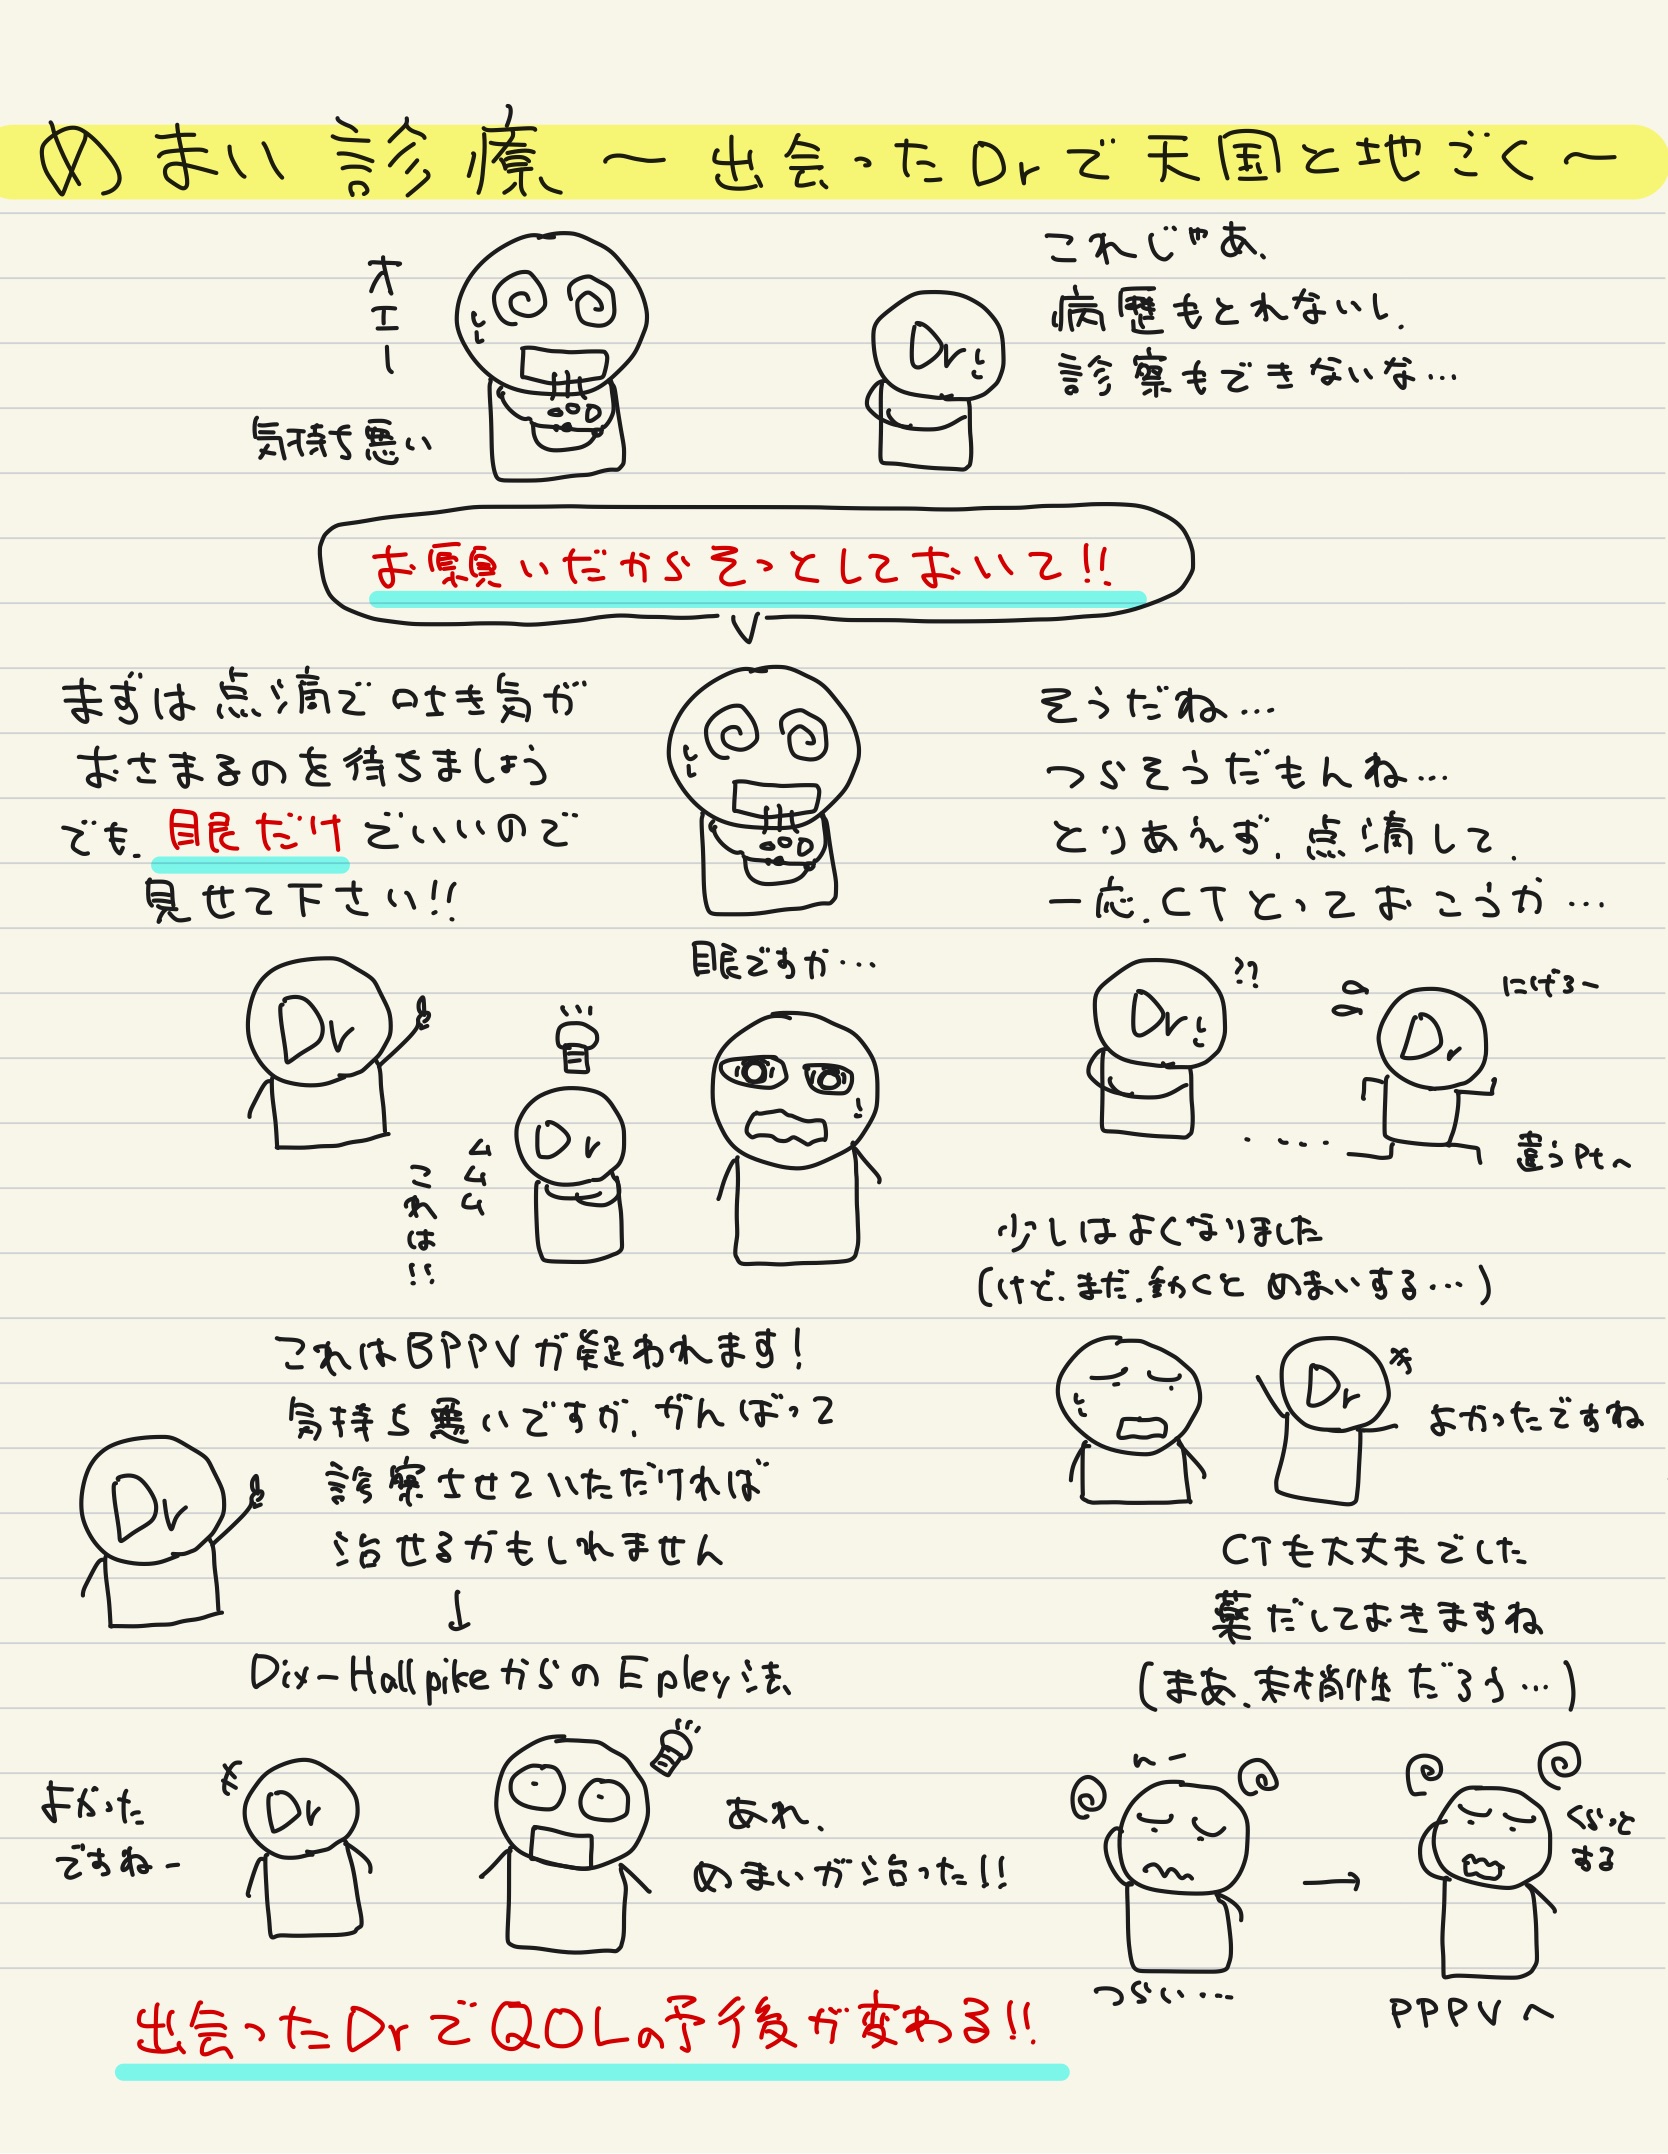 めまい診療 〜出会ったDrで天国と地ごく〜
オエー
気持ち悪い
Dr
これじゃあ、
病歴もとれないし、
診察もできないな…
お願いだからそっとしておいて!!
まずは点滴で吐き気が
おさまるのを待ちましょう
でも、眼だけでいいので
見せて下さい!!
Dr
眼ですか…
Dr
ムムム
これは!!
これはBPPVが疑われます!
気持ち悪いですが、がんばって
診察させていただければ
治せるかもしれません
Dr
↓
Dix-HallpikeからのEpley法
よかった
ですねー
Dr
あれ、
めまいが治った!!
そうだね…
つらそうだもんね…
とりあえず、点滴して、
一応、CTとっておこうか…
Dr
??
Dr
にげろ〜
違うPtへ
少しはよくなりました
(けど、まだ、動くとめまいする…)
Dr
よかったですね
CTも大丈夫でした
薬だしておきますね
(まあ、末梢性だろう…)
んー
つらい…
→
くらっと
する
PPPVへ
出会ったDrでQOLの予後が変わる!!